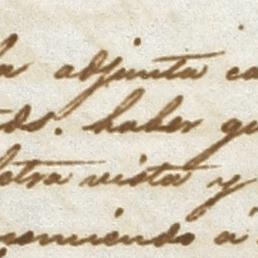 la adjunta ca
tds. haber gi
letra vista y
omiendo á